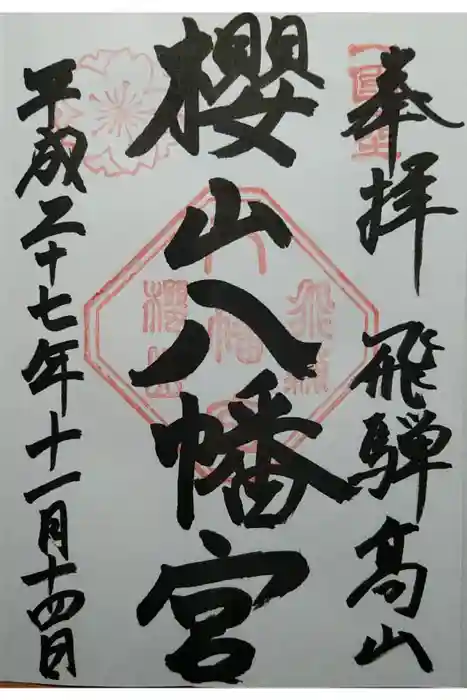 奉拝 飛騨髙山
櫻山八幡宮
平成二十七年十一月十四日